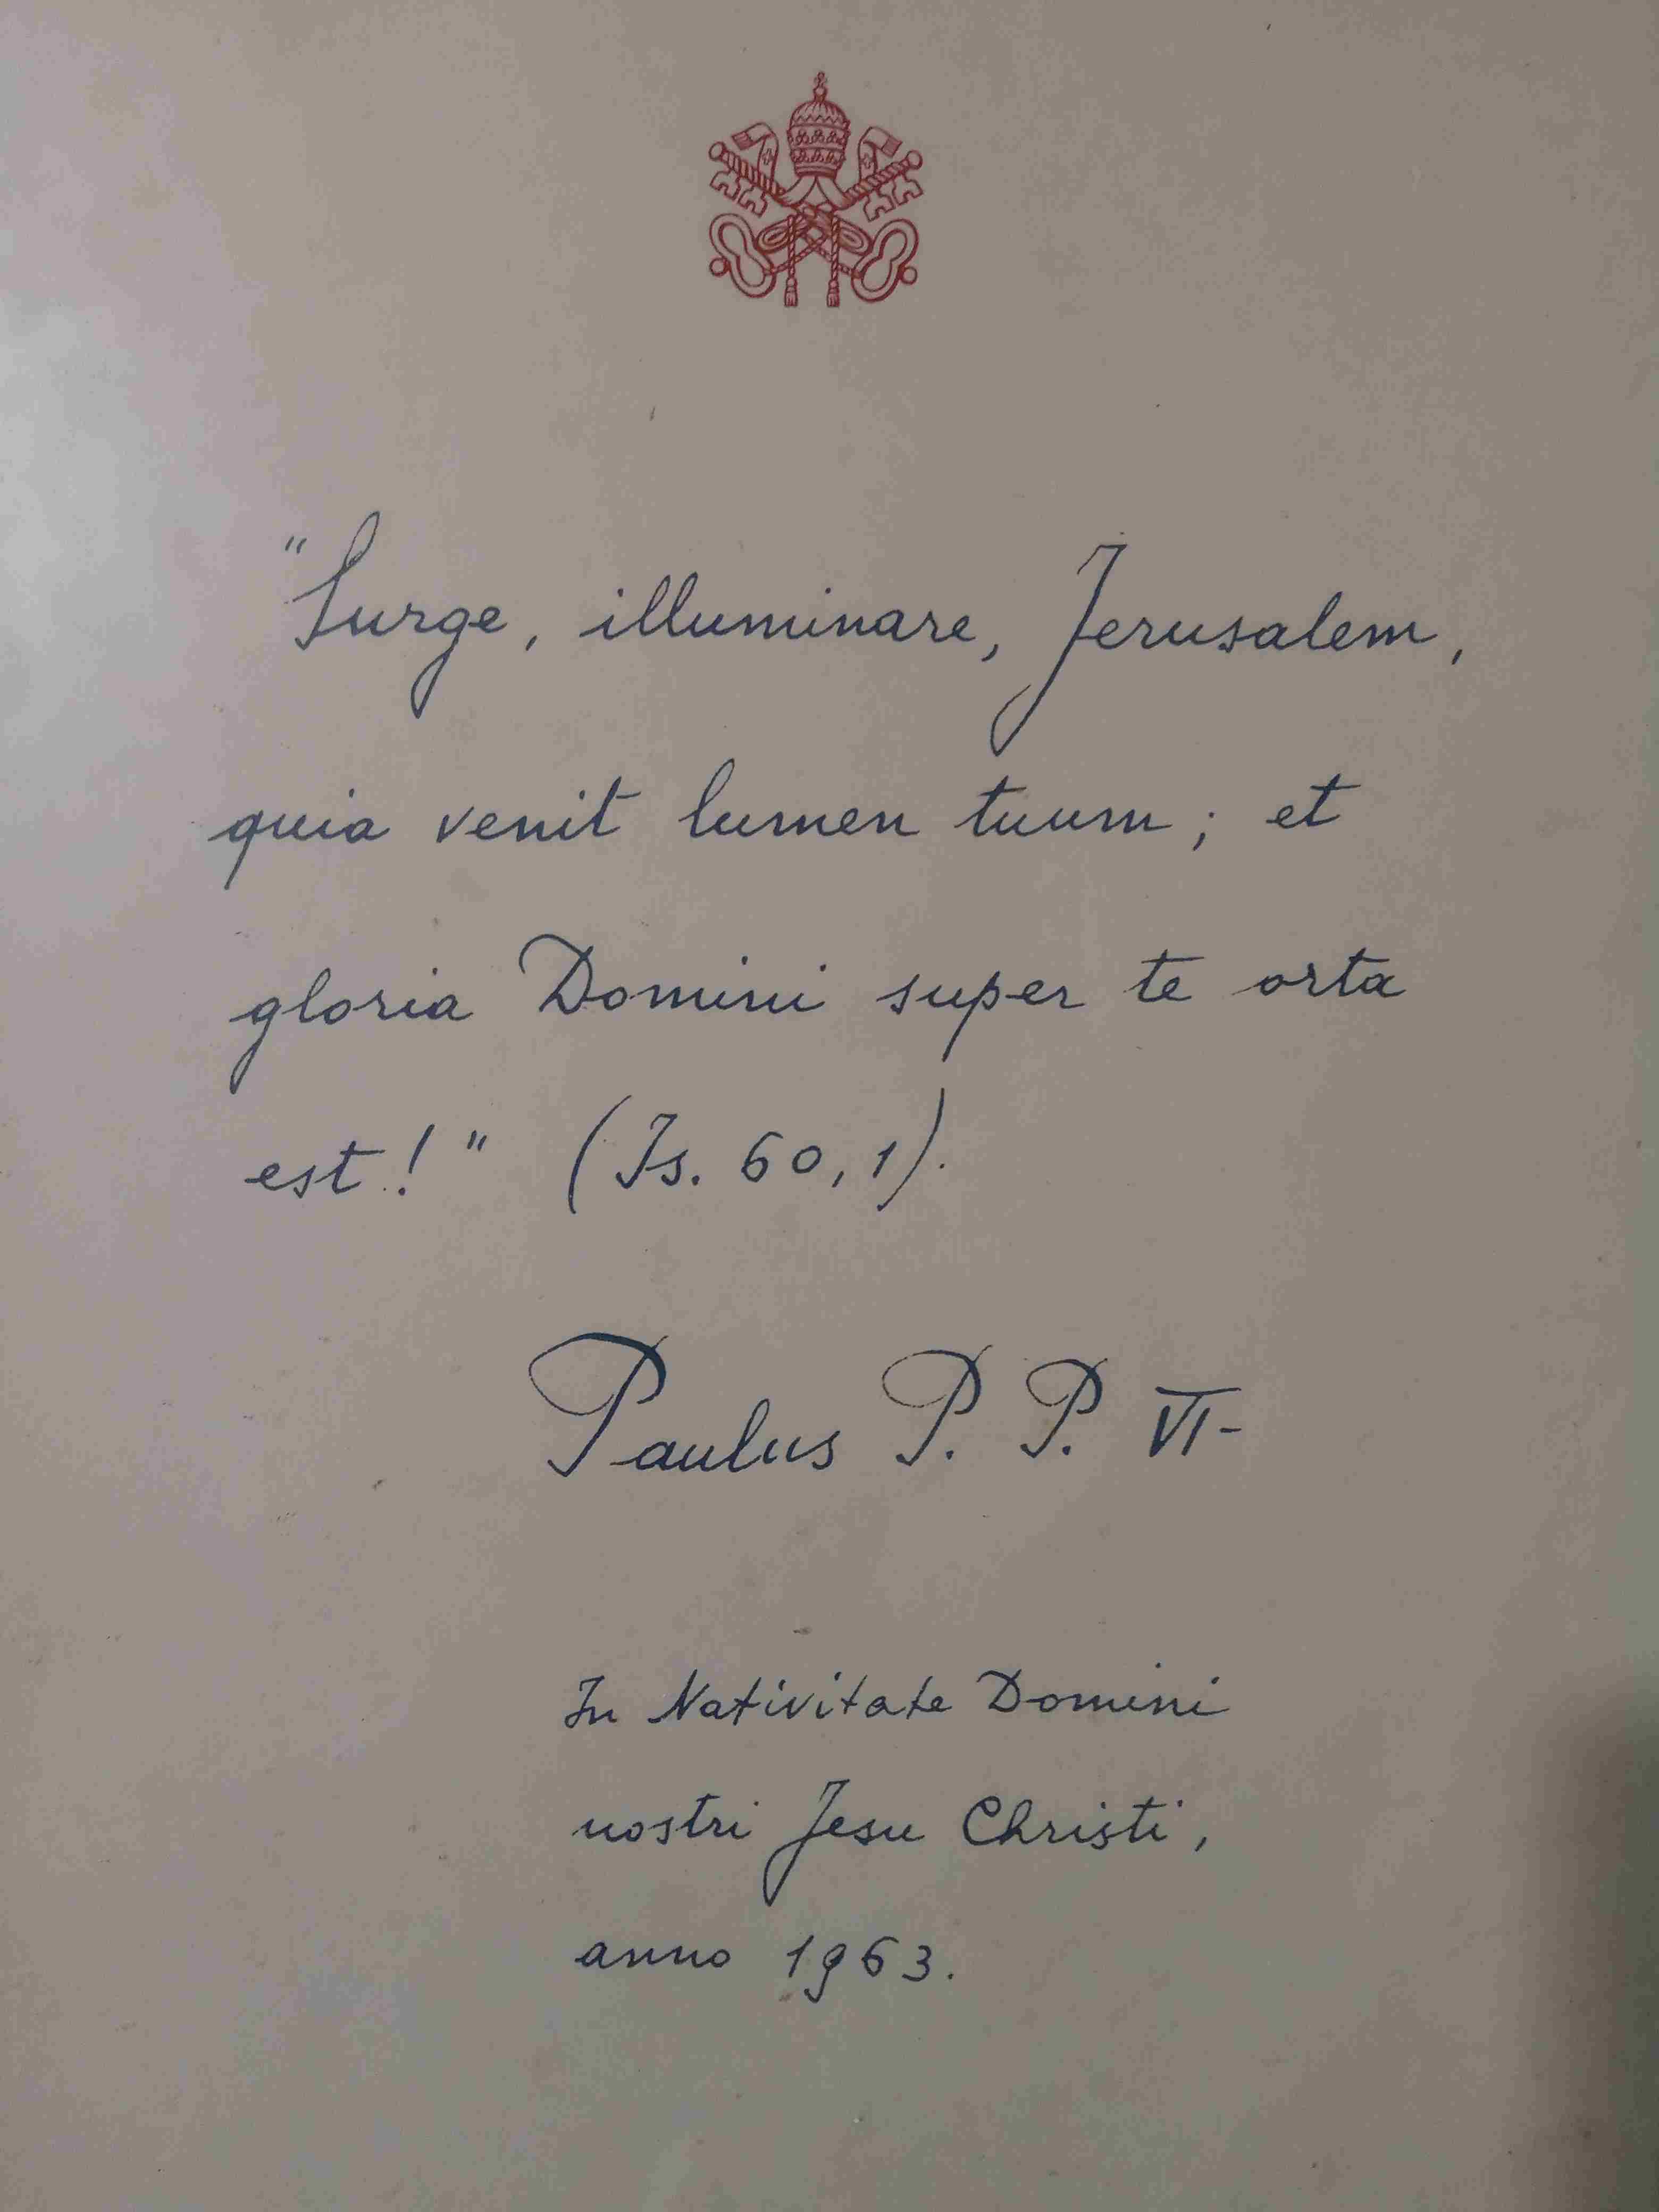 "Surge, illuminare, Jerusalem,
quia venit lumen tuum; et
gloria Domini super te orta
est!" (Is. 60,1).
Paulus P. P. VI-
In Nativitate Domini
nostri Jesu Christi,
anno 1963.